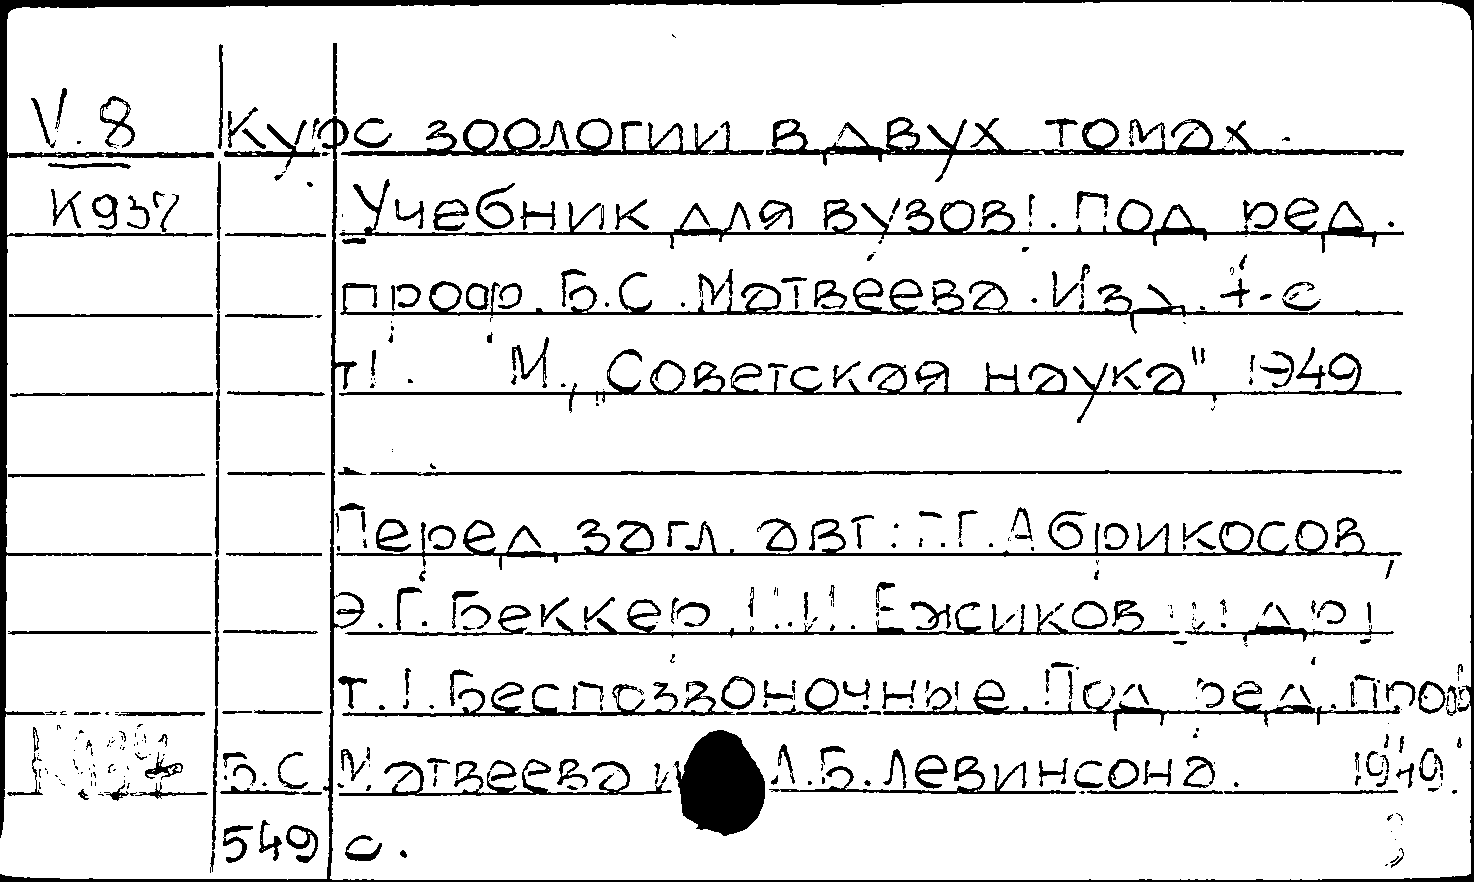 V. 8 Курс зоологии в двух томах.
К937 Учебник для вузов. Под ред.
проф. Б.С. Матвеева. Изд. 4-е
т I. М., „Советская наука", 1949
Перед загл. авт: Г.Г. Абрикосов
Э.Г. Беккер, И. Ежиков и др
т. I. Беспозвоночные. Под ред. проф
К937 Б.С. Матвеева и Л.Б. Левинсона. 1949.
549 с.